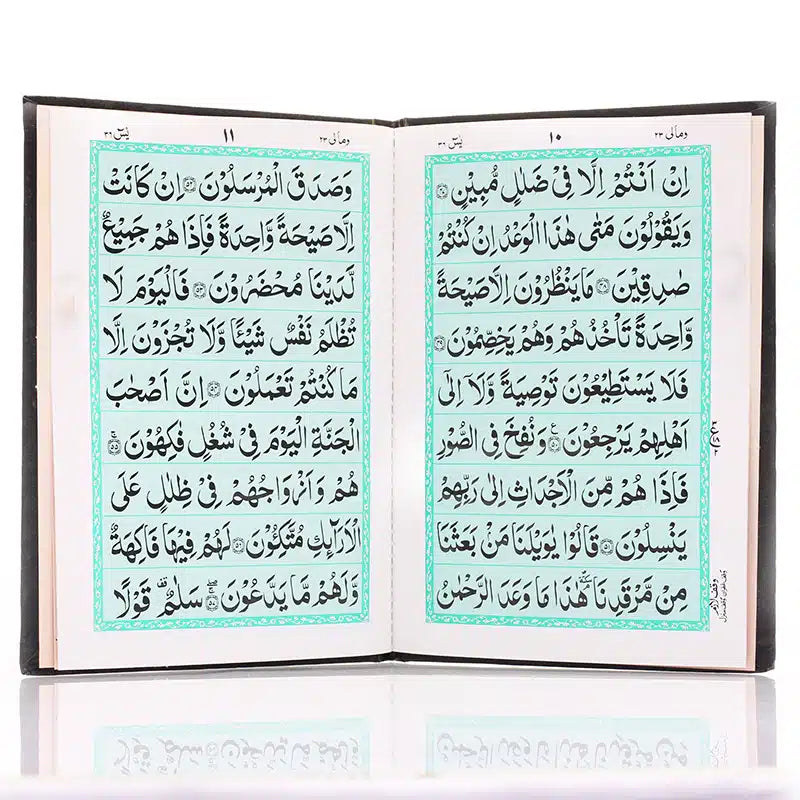 ومالی ٢٣
١٠
یٰسٓ ٣٦
اِنْ اَنْتُمْ اِلَّا فِیْ ضَلٰلٍ مُّبِیْنٍ ٤٧
وَیَقُوْلُوْنَ مَتٰی هٰذَا الْوَعْدُ اِنْ كُنْتُمْ
صٰدِقِیْنَ ٤٨ مَا یَنْظُرُوْنَ اِلَّا صَیْحَةً
وَّاحِدَةً تَاْخُذُهُمْ وَهُمْ یَخِصِّمُوْنَ ٤٩
فَلَا یَسْتَطِیْعُوْنَ تَوْصِیَةً وَّلَاۤ اِلٰۤی
اَهْلِهِمْ یَرْجِعُوْنَ ٥٠ وَنُفِخَ فِی الصُّوْرِ
فَاِذَا هُمْ مِّنَ الْاَجْدَاثِ اِلٰی رَبِّهِمْ
یَنْسِلُوْنَ ٥١ قَالُوْا یٰوَیْلَنَا مَنْۢ بَعَثَنَا
مِنْ مَّرْقَدِنَا هٰذَا مَا وَعَدَ الرَّحْمٰنُ
وقف لازم
ومالی ٢٣
١١
یٰسٓ ٣٦
وَصَدَقَ الْمُرْسَلُوْنَ ٥٢ اِنْ كَانَتْ
اِلَّا صَیْحَةً وَّاحِدَةً فَاِذَا هُمْ جَمِیْعٌ
لَّدَیْنَا مُحْضَرُوْنَ ٥٣ فَالْیَوْمَ لَا
تُظْلَمُ نَفْسٌ شَیْئًا وَّلَا تُجْزَوْنَ اِلَّا
مَا كُنْتُمْ تَعْمَلُوْنَ ٥٤ اِنَّ اَصْحٰبَ
الْجَنَّةِ الْیَوْمَ فِیْ شُغُلٍ فٰكِهُوْنَ ٥٥
هُمْ وَاَزْوَاجُهُمْ فِیْ ظِلٰلٍ عَلَی
الْاَرَآئِكِ مُتَّكِـُٔوْنَ ٥٦ لَهُمْ فِیْهَا فَاكِهَةٌ
وَّلَهُمْ مَّا یَدَّعُوْنَ ٥٧ سَلٰمٌ قَوْلًا